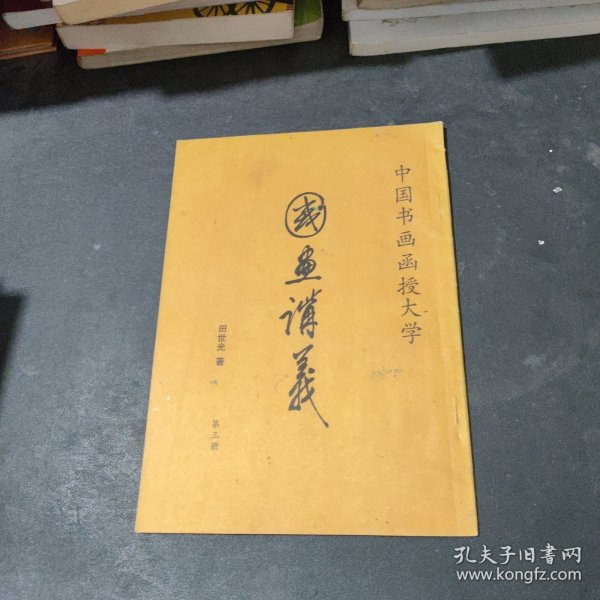 中国书画函授大学
國畫講義
田世光 著
第三册
孔夫子旧书网
www.kongfz.com